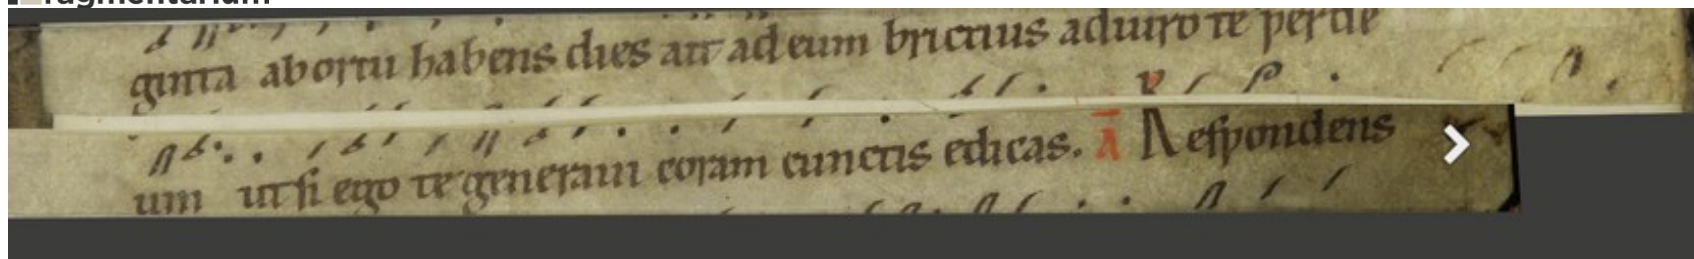 fragmentarium
ginta abortu habens dies ait ad eum brictius adiuro te per de
um ut si ego te generaui coram cunctis edicas. A Respondens